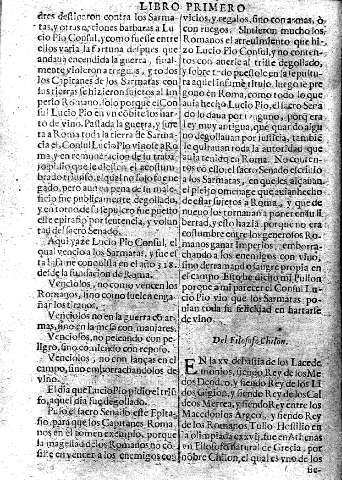 LIBRO PRIMERO
dres destioron contra los Sarma-
tas, y otras naciones barbaras a Lu-
cio Pio Consul, como fuesse entre
ellos varia la fortuna despues que
andaua encendida la guerra, final-
mente vinieron a treguas, y todos
los Capitanes de los Sarmatas con
sus tierras se hizieron sujetos al Im-
perio Romano, solo porque el Con-
sul Lucio Pio en vn cõbite los har-
to de vino. Passada la guerra, y suje-
ta a Roma toda la tierra de Sarma-
cia, el Consul Lucio Pio vino se a Ro-
ma, y en remuneracion de su traba-
jo pidio que le diessen el acostum-
brado triunfo, el qual no solo fue ne-
gado, pero aun en pena de su male-
ficio fue publicamente degollado,
y en torno de su sepulcro fue puesto
este epitafio por sentencia, y volun-
tad del sacro Senado.
Aqui yaze Lucio Pio Consul, el
qual vencio a los Sarmatas, y fue el
tal batalla concedida en el año 318.
de la fundacion de Roma.
Venciolos, no como vencen los
Romanos, sino como suelen enga-
ñar los tiranos.
Venciolos no en la guerra cõ ar-
mas, sino en la mesa con manjares.
Venciolos, no peleando con pe-
ligro, sino comiendo con reposo.
Venciolos, no con lanças en el
campo, sino emborrachandolos de
vino.
El dia que Lucio Pio pidio el triũfo,
aquel dia fue degollado.
Puso el sacro Senado este Epita-
fio, para que los Capitanes Roma-
nos en el tomen exemplo, porque
la magestad de los Romanos no cõ-
siste en vencer a los enemigos con
vicios, y regalos, sino con armas, ò
con ruegos. Sintieron mucho los
Romanos el atreuimiento que hi-
zo Lucio Pio Consul, y no conten-
tos con auerle al triste degollado,
y sobre todo puestole en la sepultu-
ra aquel infame titulo, luego se pre-
gono en Roma, como todo lo que
auia hecho Lucio Pio, el sacro Sena-
do lo daua por ninguno, porque era
ley muy antigua, que quando algũ
no degollauan por justicia, tambiẽ
le quitauan toda la autoridad que
auia tenido en Roma. No conten-
tos no ello, el sacro Senado escriuio
a los Sarmatas, en que les alçauan
el pleyto omenage que auian hecho
de estar sujetos a Roma, y que de
nueuo los tornauan a poner en su li-
bertad, y esto hazia, porque no era
costumbre entre los generosos Ro-
manos ganar Imperios, emborra-
chando a los enemigos con vino,
sino derramando sangre propia en
el campo. Esto he dicho mi Pulion
porque a mi parecer el Consul Lu-
cio Pio vio que los Sarmatas po-
nian toda su felicidad en hartarse
de vino.
Del Filosofo Chilon.
EN la xv. dinastia de los Lacede-
monios, siendo Rey de los Me-
dos Deodoco, y siendo Rey de los Li
dos Gigion, y siendo Rey de los Cal
deos Merea, y siendo Rey entre los
Macedonios Argeo, y siendo Rey
de los Romanos Tulio Hostilio en
la olimpiada xxvij. fue en Athenas
vn Filosofo natural de Grecia, por
nõbre Chilon, el qual es vno de los
sie-